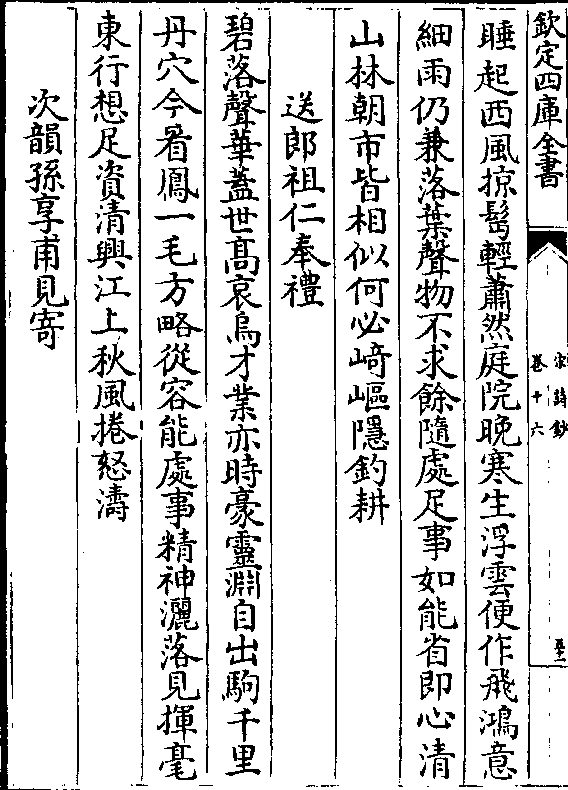 欽定四庫全書
宋詩鈔
卷十六
睡起西風掠髩輕蕭然庭院晚寒生浮雲便作飛鴻意
細雨仍兼落葉聲物不求餘隨處足事如能省即心清
山林朝市皆相似何必﨑嶇隱釣耕
送郎祖仁奉禮
碧落聲華蓋世髙哀烏才業亦時豪靈淵自出駒千里
丹穴今看鳳一毛方略從容能處事精神灑落見揮毫
東行想足資清興江上秋風捲怒濤
次韻孫享甫見寄